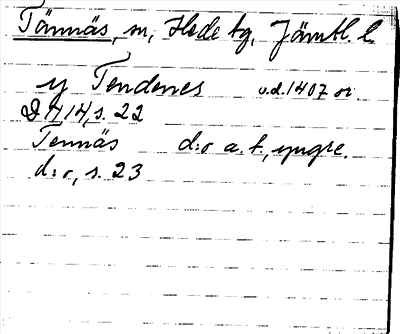 Tännäs, sn, Hede tg, Jämtl. l.
y Tendenes u.d. 1407 or.
DN 14, s. 22
Tennäs d:o a.f., yngre.
d:o, s. 23